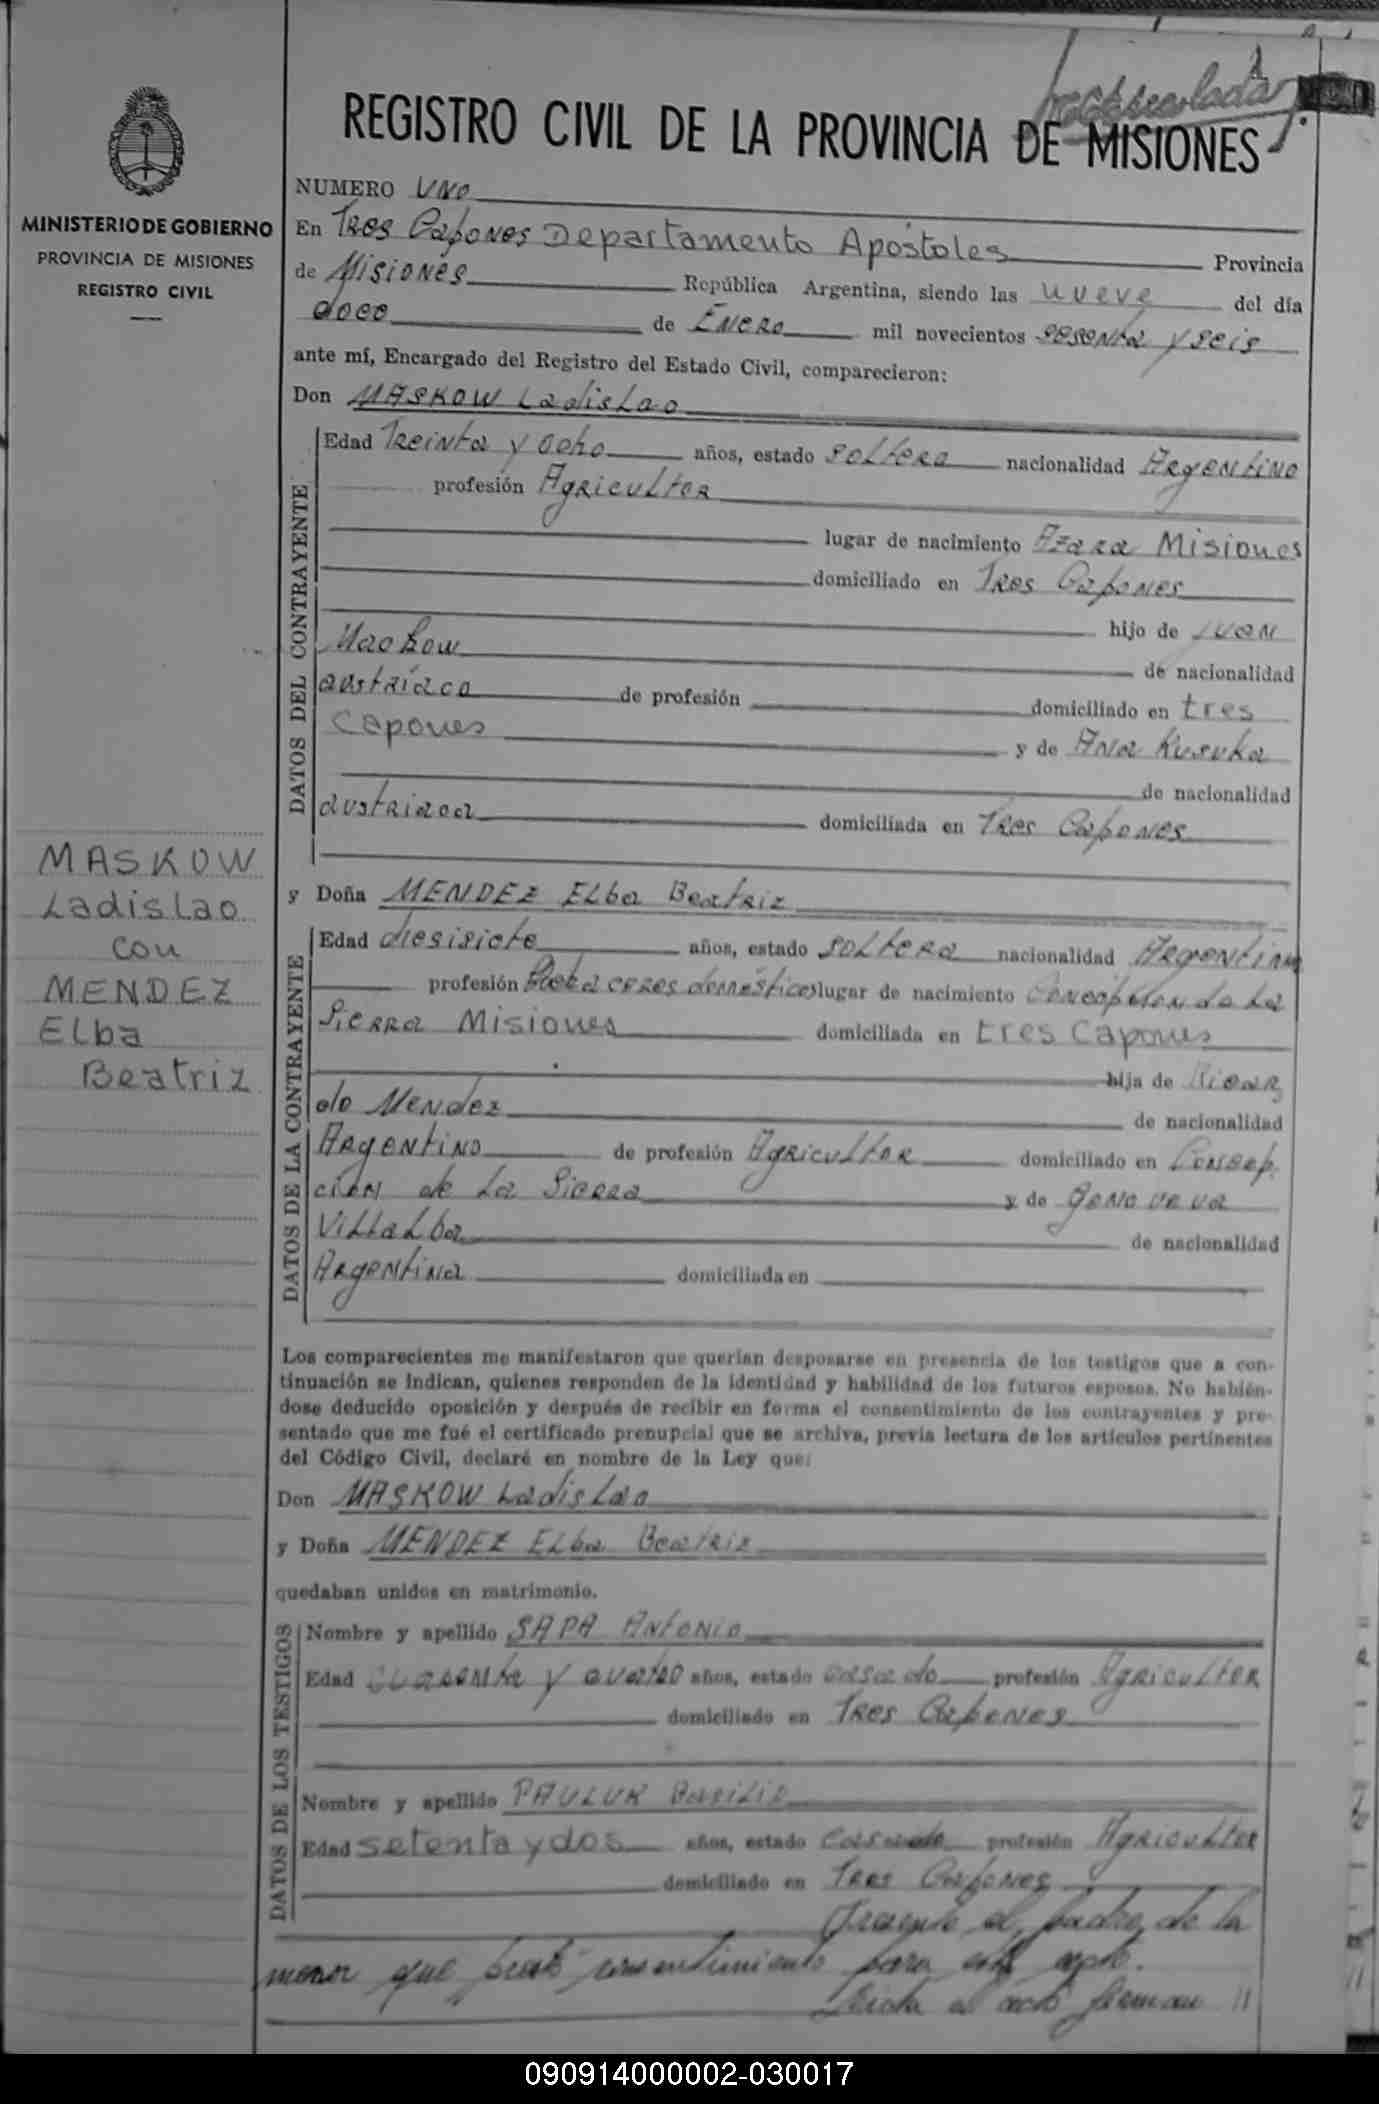 REGISTRO CIVIL DE LA PROVINCIA DE MISIONES
MINISTERIO DE GOBIERNO
PROVINCIA DE MISIONES
REGISTRO CIVIL
MASKOW
Ladislao
con
MENDEZ
Elba
Beatriz
NUMERO UNO
En Tres Capones Departamento Apóstoles Provincia
de Misiones República Argentina, siendo las nueve del día
doce de Enero mil novecientos sesenta y seis
ante mí, Encargado del Registro del Estado Civil, comparecieron:
Don MASKOW Ladislao
DATOS DEL CONTRAYENTE
Edad Treinta y ocho años, estado soltero nacionalidad Argentino
profesión Agricultor
lugar de nacimiento Azara Misiones
domiciliado en Tres Capones
hijo de Juan
Maskow de nacionalidad
austríaco de profesión domiciliado en tres
Capones y de Ana Kusuka
de nacionalidad
austriaca domiciliada en Tres Capones
y Doña MENDEZ Elba Beatriz
DATOS DE LA CONTRAYENTE
Edad diesisiete años, estado soltera nacionalidad Argentina
profesión domésticos lugar de nacimiento Concepcion de La
Sierra Misiones domiciliada en tres Capones
hija de Ricar
do Mendez de nacionalidad
Argentino de profesión Agricultor domiciliado en Consep.
cion de La Sierra y de Genoveva
Villalba de nacionalidad
Argentina domiciliada en
Los comparecientes me manifestaron que querían desposarse en presencia de los testigos que a con-
tinuación se indican, quienes responden de la identidad y habilidad de los futuros esposos. No habién-
dose deducido oposición y después de recibir en forma el consentimiento de los contrayentes y pre-
sentado que me fué el certificado prenupcial que se archiva, previa lectura de los artículos pertinentes
del Código Civil, declaré en nombre de la Ley que:
Don MASKOW Ladislao
y Doña MENDEZ Elba Beatriz
quedaban unidos en matrimonio.
DATOS DE LOS TESTIGOS
Nombre y apellido SAPA Antonio
Edad cuarenta y cuatro años, estado casado profesión Agricultor
domiciliado en Tres Capones
Nombre y apellido PAULUK Basilio
Edad setenta y dos años, estado Casado profesión Agricultor
domiciliado en Tres Capones
Presente el padre de la
menor que prestó consentimiento para este acto.
Leída el acta firman //
090914000002-030017